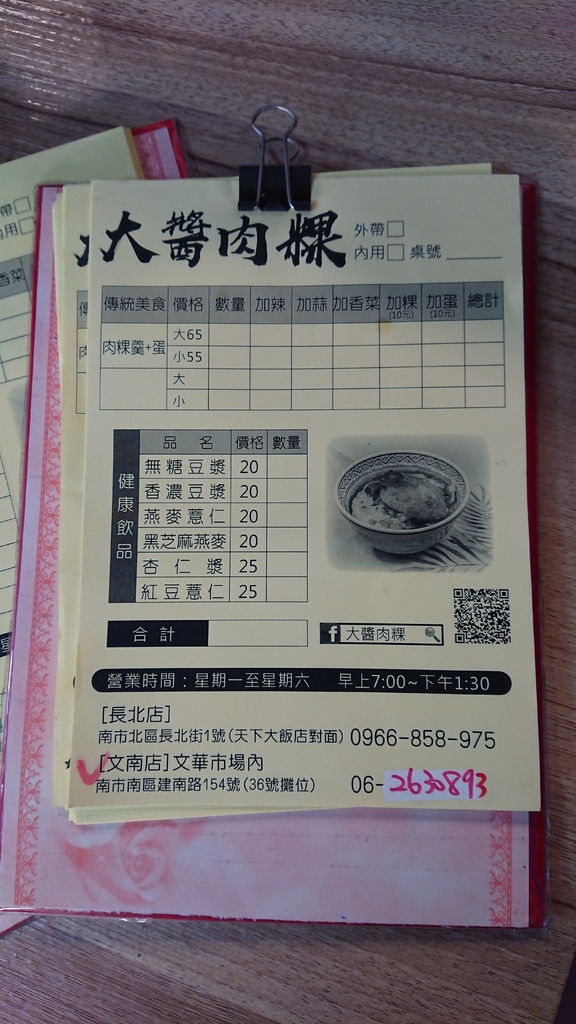 大醬肉粿
外帶□
內用□ 桌號
傳統美食 價格 數量 加辣 加蒜 加香菜 加粿(10元) 加蛋(10元) 總計
肉粿羹+蛋 大65
小55
大
小
健康飲品
品名 價格 數量
無糖豆漿 20
香濃豆漿 20
燕麥薏仁 20
黑芝麻燕麥 20
杏仁漿 25
紅豆薏仁 25
合計
f 大醬肉粿
營業時間：星期一至星期六 早上7:00~下午1:30
[長北店]
南市北區長北街1號(天下大飯店對面) 0966-858-975
[文南店]文華市場內
南市南區建南路154號(36號攤位) 06-2630893
帶□
內用□
香菜